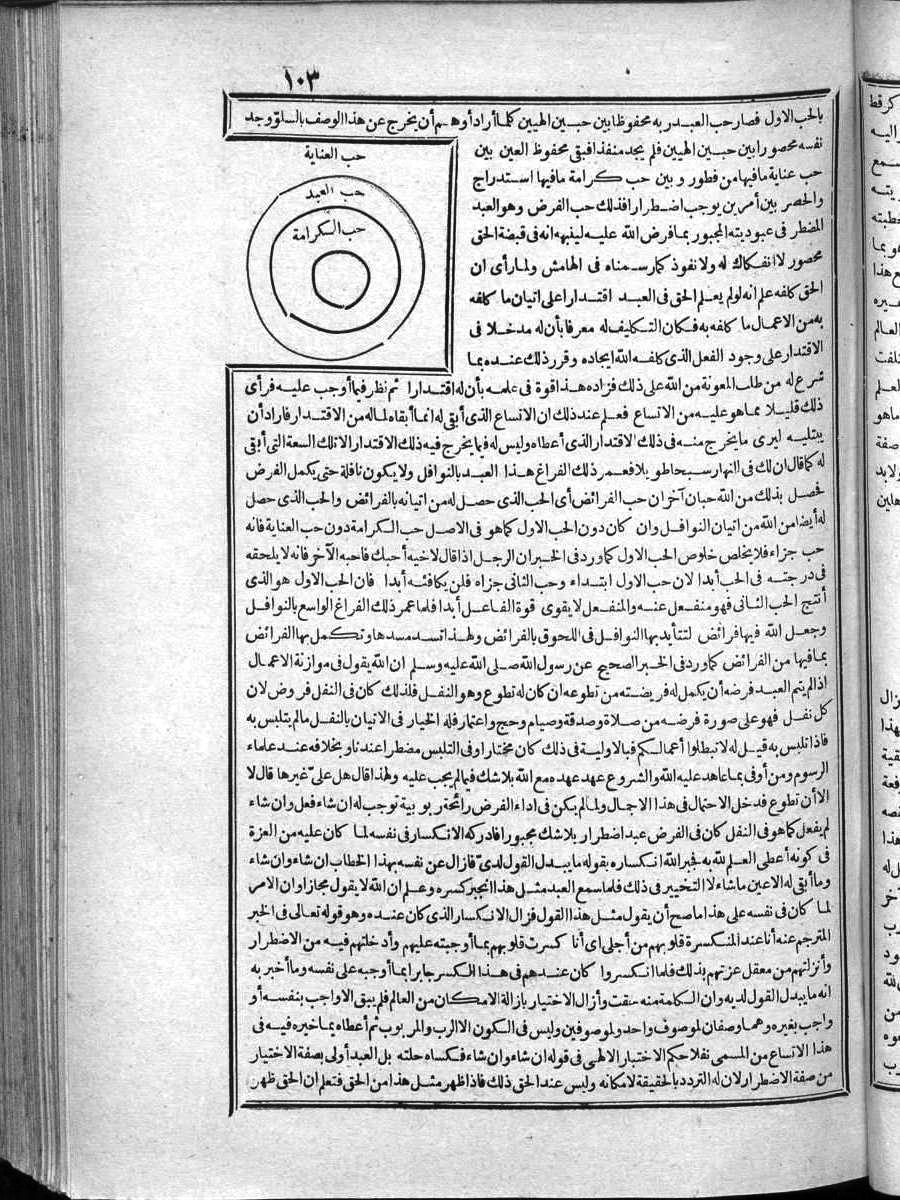 ١٠٣
بالحب الاول فصار حب العبد ربه محفوظا بين حبين الهيين كلما أراد أو هم أن يخرج عن هذا الوصف بالسلو وجد
نفسه محصورا بين حبين الهيين فلم يجد منفذا فبقى محفوظ العين بين
حب عناية ما فيها من فطور و بين حب كرامة ما فيها استدراج
والحصر بين أمرين يوجب اضطرارا فذلك حب الفرض وهو العبد
المضطر فى عبوديته المجبور بما فرض الله عليه لينبهه انه فى قبضة الحق
محصور لا انفكاك له ولا نفوذ كما رسمناه فى الهامش ولما رأى ان
الحق كلفه علم انه لو لم يعلم الحق فى العبد اقتدارا على اتيان ما كلفه
به من الاعمال ما كلفه به فكان التكليف له معرفا بأن له مدخلا فى
الاقتدار على وجود الفعل الذى كلفه الله ايجاده وقرر ذلك عنده بما
حب العناية
حب العبد
حب الكرامة
شرع له من طلب المعونة من الله على ذلك فزاده هذا قوة فى علمه بأن له اقتدارا ثم نظر فيما أوجب عليه فرأى
ذلك قليلا مما هو عليه من الاتساع فعلم عند ذلك ان الاتساع الذى أبقى له انما أبقاه لما له من الاقتدار فاراد أن
يبتليه ليرى ما يخرج منه فى ذلك الاقتدار الذى أعطاه وليس له فيما يخرج فيه ذلك الاقتدار الا تلك السعة التى أبقى
له كما قال ان لك فى النهار سبحا طويلا فعمر ذلك الفراغ هذا العبد بالنوافل ولا يكون نافلة حتى يكمل الفرض
فحصل بذلك من الله حبان آخران حب الفرائض أى الحب الذى حصل له من اتيانه بالفرائض والحب الذى حصل
له أيضا من الله من اتيان النوافل وان كان دون الحب الاول كما هو فى الاصل حب الكرامة دون حب العناية فانه
حب جزاء فلا يخلص خلوص الحب الاول كما ورد فى الخبر ان الرجل اذا قال لاخيه أحبك فاحبه الآخر فانه لا يلحقه
فى درجته فى الحب أبدا لان حب الاول ابتداء وحب الثانى جزاء فلن يكافئه أبدا فان الحب الاول هو الذى
أنتج الحب الثانى فهو منفعل عنه والمنفعل لا يقوى قوة الفاعل أبدا فلما عمر ذلك الفراغ الواسع بالنوافل
وجعل الله فيها فرائض لتتأيد بها النوافل فى اللحوق بالفرائض ولهذا تسد مسدها وتكمل بها الفرائض
بما فيها من الفرائض كما ورد فى الخبر الصحيح عن رسول الله صلى الله عليه وسلم ان الله يقول فى موازنة الاعمال
اذا لم يتم العبد فرضه أن يكمل له فريضته من تطوعه ان كان له تطوع وهو النفل فلذلك كان فى النفل فروض لان
كل نفل فهو على صورة فرضه من صلاة وصدقة وصيام وحج واعتمار فله الخيار فى الاتيان بالنفل ما لم يتلبس به
فاذا تلبس به قيل له لا تبطلوا أعمالكم فبالاولية فى ذلك كان مختارا وفى التلبس مضطرا عندنا وبخلافه عند علماء
الرسوم ومن أوفى بما عاهد عليه الله والشروع عهد عهده مع الله بلا شك فيما لم يجب عليه ولهذا قال هل علىّ غيرها قال لا
الا أن تطوع فدخل الاحتمال فى هذا الاجمال ولما لم يكن فى اداء الفرض رائحة ربوبية توجب له ان شاء فعل وان شاء
لم يفعل كما هو فى النفل كان فى الفرض عبد اضطرار بلا شك مجبورا فادركه الانكسار فى نفسه لما كان عليه من العزة
فى كونه أعطى العلم لله به فجبر الله انكساره بقوله ما يبدل القول لدىّ فازال عن نفسه بهذا الخطاب ان شاء وان شاء
وما أبقى له الا عين ما شاء لا التخيير فى ذلك فلما سمع العبد مثل هذا انجبر كسره وعلم ان الله لا يقول مجازا وان الامر
لما كان فى نفسه على هذا ما صح أن يقول مثل هذا القول فزال الانكسار الذى كان عنده وهو قوله تعالى فى الخبر
المترجم عنه أنا عند المنكسرة قلوبهم من أجلى اى أنا كسرت قلوبهم بما أوجبته عليهم وأدخلتهم فيه من الاضطرار
وأنزلتهم من معقل عزتهم بذلك فلما انكسروا كان عندهم فى هذا الكسر جابرا بما أوجبه على نفسه وما أخبر به
انه ما يبدل القول لديه وان الكلمة منه حقت وأزال الاختيار بازالة الامكان من العالم فلم يبق الا واجب بنفسه أو
واجب بغيره وهما وصفان لموصوف واحد ولموصوفين وليس فى الكون الا الرب والمربوب ثم أعطاه بما خيره فيه فى
هذا الاتساع من المسمى نفلا حكم الاختيار الالهى فى قوله ان شاء وان شاء فكساه حلته بل العبد أولى بصفة الاختيار
من صفة الاضطرار لان له التردد بالحقيقة لامكانه وليس عند الحق ذلك فاذا ظهر مثل هذا من الحق فتعلم ان الحق ظهر